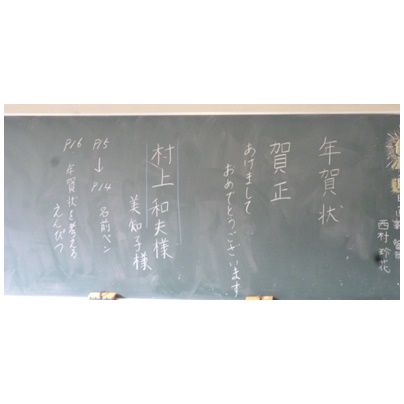 年賀状
賀正
あけまして
おめでとうございます
村上 和夫様
美知子様
P15
↓
P14 名前ペン
P16 年賀状を考える
えんぴつ
西村 玲花